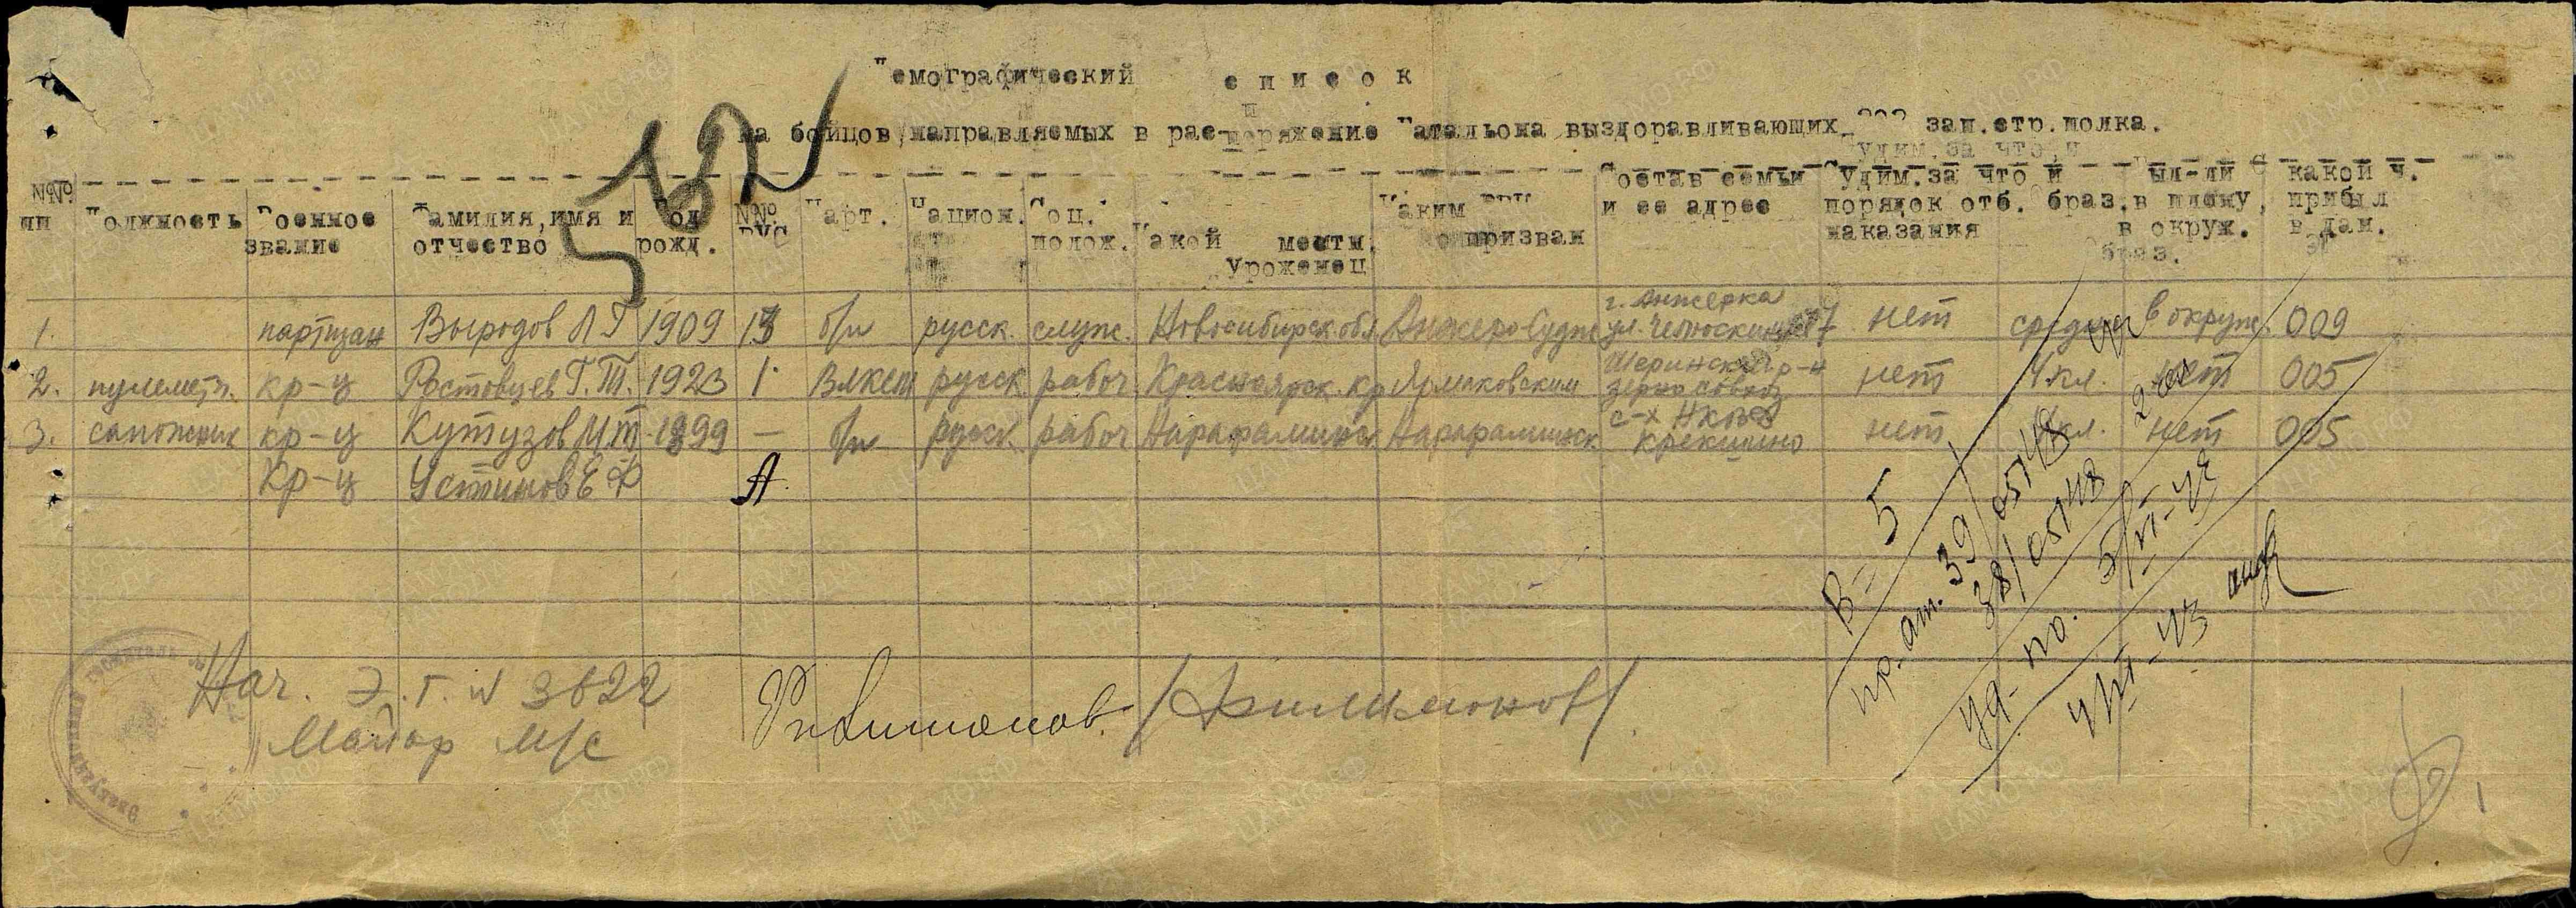 емографический список
на бойцов, направляемых в распоряжение Батальона выздоравливающих зап.стр.полка.
182
№№ пп олжность оенное звание амилия, имя и отчество од рожд. №№ ВУС арт. ацион. оц. полож. акой местн. уроженец аким РВК призван остав семьи и ее адрес удим.за что и порядок отб. наказания браз. ыл-ли в плену, в окруж. с какой ч. прибыл в дан.
1. партизан Выродов Л Г 1909 13 б/п русск. служ. Новосибирск. обл Анжеро-Судж г. Анжерка ул. Челюскинцев нет средн в окруж. 009
2. пулеметч. кр-ц Ростовцев Г. Т. 1923 1 ВЛКСМ русск рабоч Красноярск. кр Ярмаковским Шеринский р-н зерносовхоз нет 4 кл. нет 005
3. сапожник кр-ц Кутузов М Т 1899 — б/п русск. рабоч Нарафаминск Нарафаминск с-х НКВД Крекшино нет кл. нет 005
кр-ц Устинов Е Ф А.
В = 5
пр. ат. 39/05148
38/05148
уд-по. 5/VI-43
4/VI-43
Нач. Э.Г. № 3622
Майор м/с
Филимонов /Филимонов/